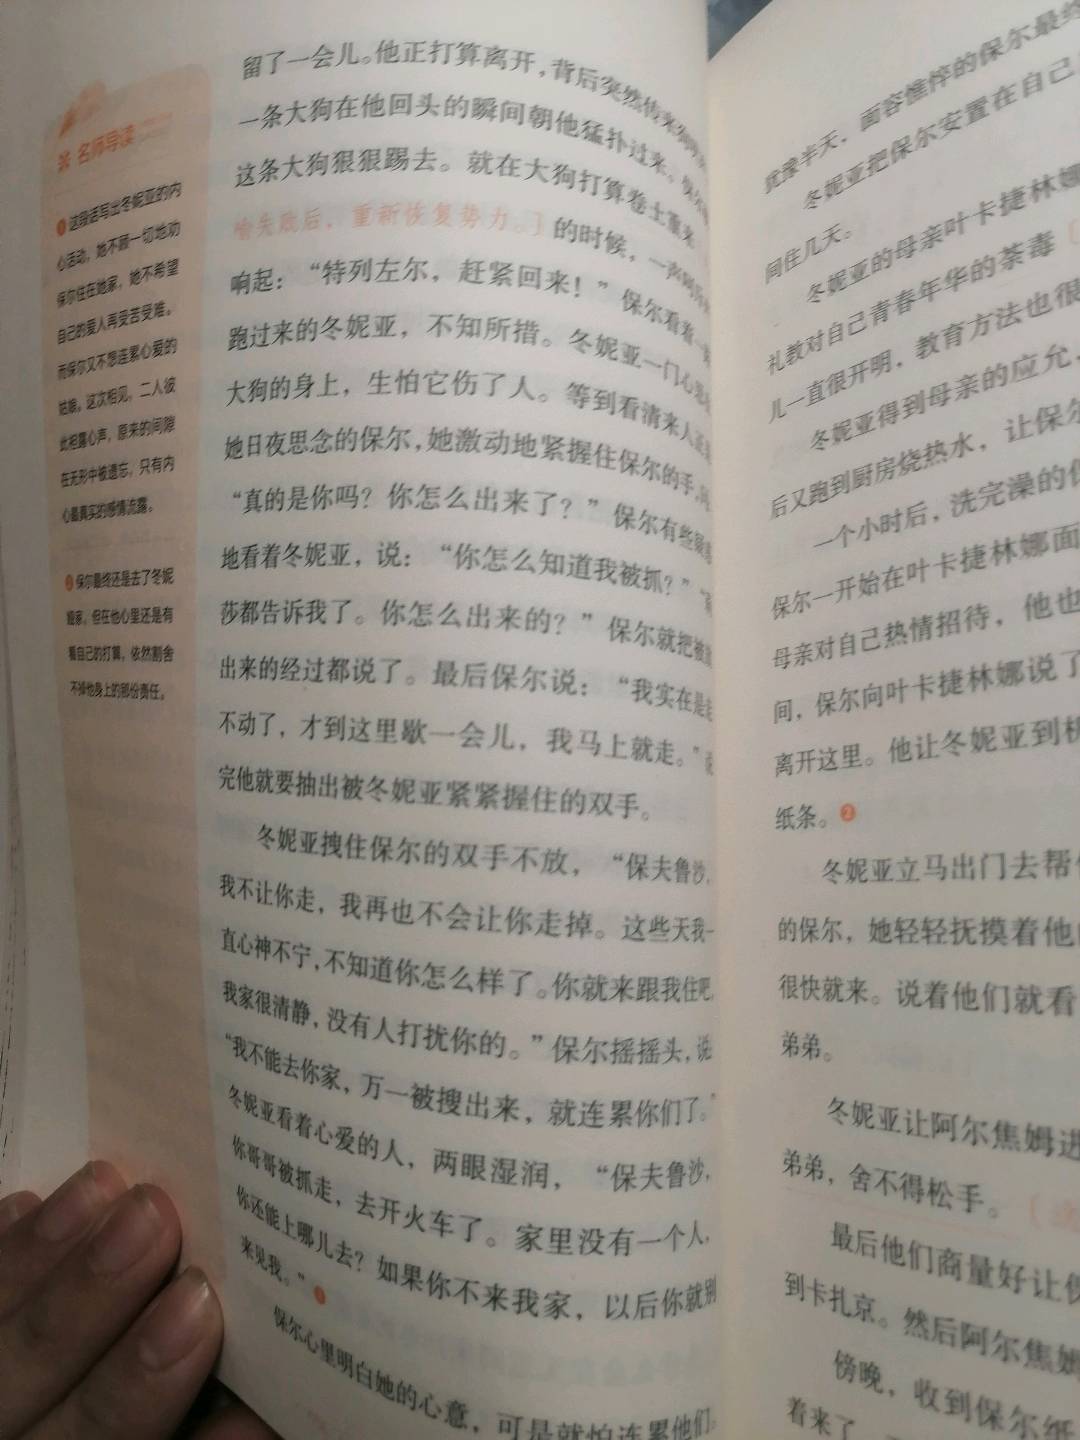 名师导读
这段话写出冬妮亚的内
心活动，她不顾一切地劝
保尔住在她家，她不希望
自己的爱人再受苦受难。
而保尔又不想连累心爱的
姑娘。这次相见，二人彼
此袒露心声，原来的间隙
在无形中被遗忘，只有内
心最真实的感情流露。
保尔最终还是去了冬妮
娅家，但在他心里还是有
着自己的打算，依然割舍
不掉他身上的那份责任。
留了一会儿。他正打算离开，背后突然传来
一条大狗在他回头的瞬间朝他猛扑过来。
这条大狗狠狠踢去。就在大狗打算卷土重来
喻失败后，重新恢复势力。］的时候，一声
响起：“特列左尔，赶紧回来！”保尔看着
跑过来的冬妮亚，不知所措。冬妮亚一门心思
大狗的身上，生怕它伤了人。等到看清来人正是
她日夜思念的保尔，她激动地紧握住保尔的手，
“真的是你吗？你怎么出来了？”保尔有些疑惑
地看着冬妮亚，说：“你怎么知道我被抓？”
莎都告诉我了。你怎么出来的？”保尔就把被
出来的经过都说了。最后保尔说：“我实在是走
不动了，才到这里歇一会儿，我马上就走。”说
完他就要抽出被冬妮亚紧紧握住的双手。
冬妮亚拽住保尔的双手不放，“保夫鲁沙，
我不让你走，我再也不会让你走掉。这些天我一
直心神不宁，不知道你怎么样了。你就来跟我住吧，
我家很清静，没有人打扰你的。”保尔摇摇头，说：
“我不能去你家，万一被搜出来，就连累你们了。”
冬妮亚看着心爱的人，两眼湿润，“保夫鲁沙，
你哥哥被抓走，去开火车了。家里没有一个人，
你还能上哪儿去？如果你不来我家，以后你就别
来见我。”
保尔心里明白她的心意，可是就怕连累他们。
犹豫半天，面容憔悴的保尔最终
冬妮亚把保尔安置在自己
间住几天。
冬妮亚的母亲叶卡捷林娜
礼教对自己青春年华的荼毒
儿一直很开明，教育方法也很
冬妮亚得到母亲的应允，
后又跑到厨房烧热水，让保尔
一个小时后，洗完澡的保
保尔一开始在叶卡捷林娜面
母亲对自己热情招待，他也
间，保尔向叶卡捷林娜说了
离开这里。他让冬妮亚到机
纸条。❷
冬妮亚立马出门去帮
的保尔，她轻轻抚摸着他
很快就来。说着他们就看
弟弟。
冬妮亚让阿尔焦姆进
弟弟，舍不得松手。
最后他们商量好让保
到卡扎京。然后阿尔焦姆
傍晚，收到保尔纸
着来了